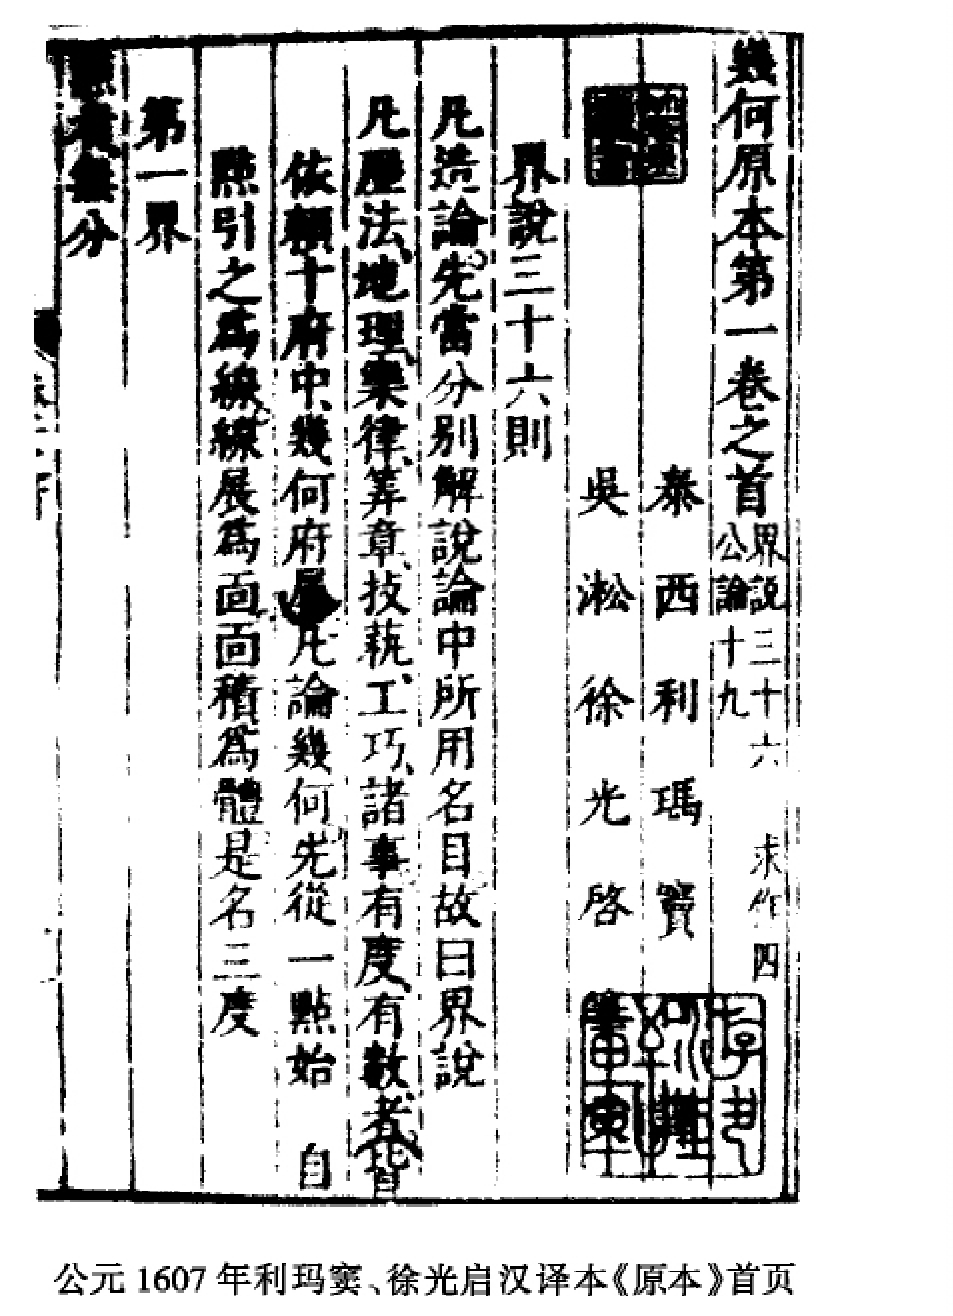 幾何原本第一卷之首 界說三十六 求作四
公論十九
泰西利瑪竇
吳淞徐光啓
界說三十六則
凡造論。先當分別解說論中所用名目故曰界說
凡歷法、地理、樂律、筭章、技蓺、工巧、諸事有度、有數、者、皆
依賴十府中、幾何府屬凡論幾何先從一點始 自
點引之爲線線展爲面面積爲體是名三度
第一界
點者無分
公元1607年利玛窦、徐光启汉译本《原本》首页